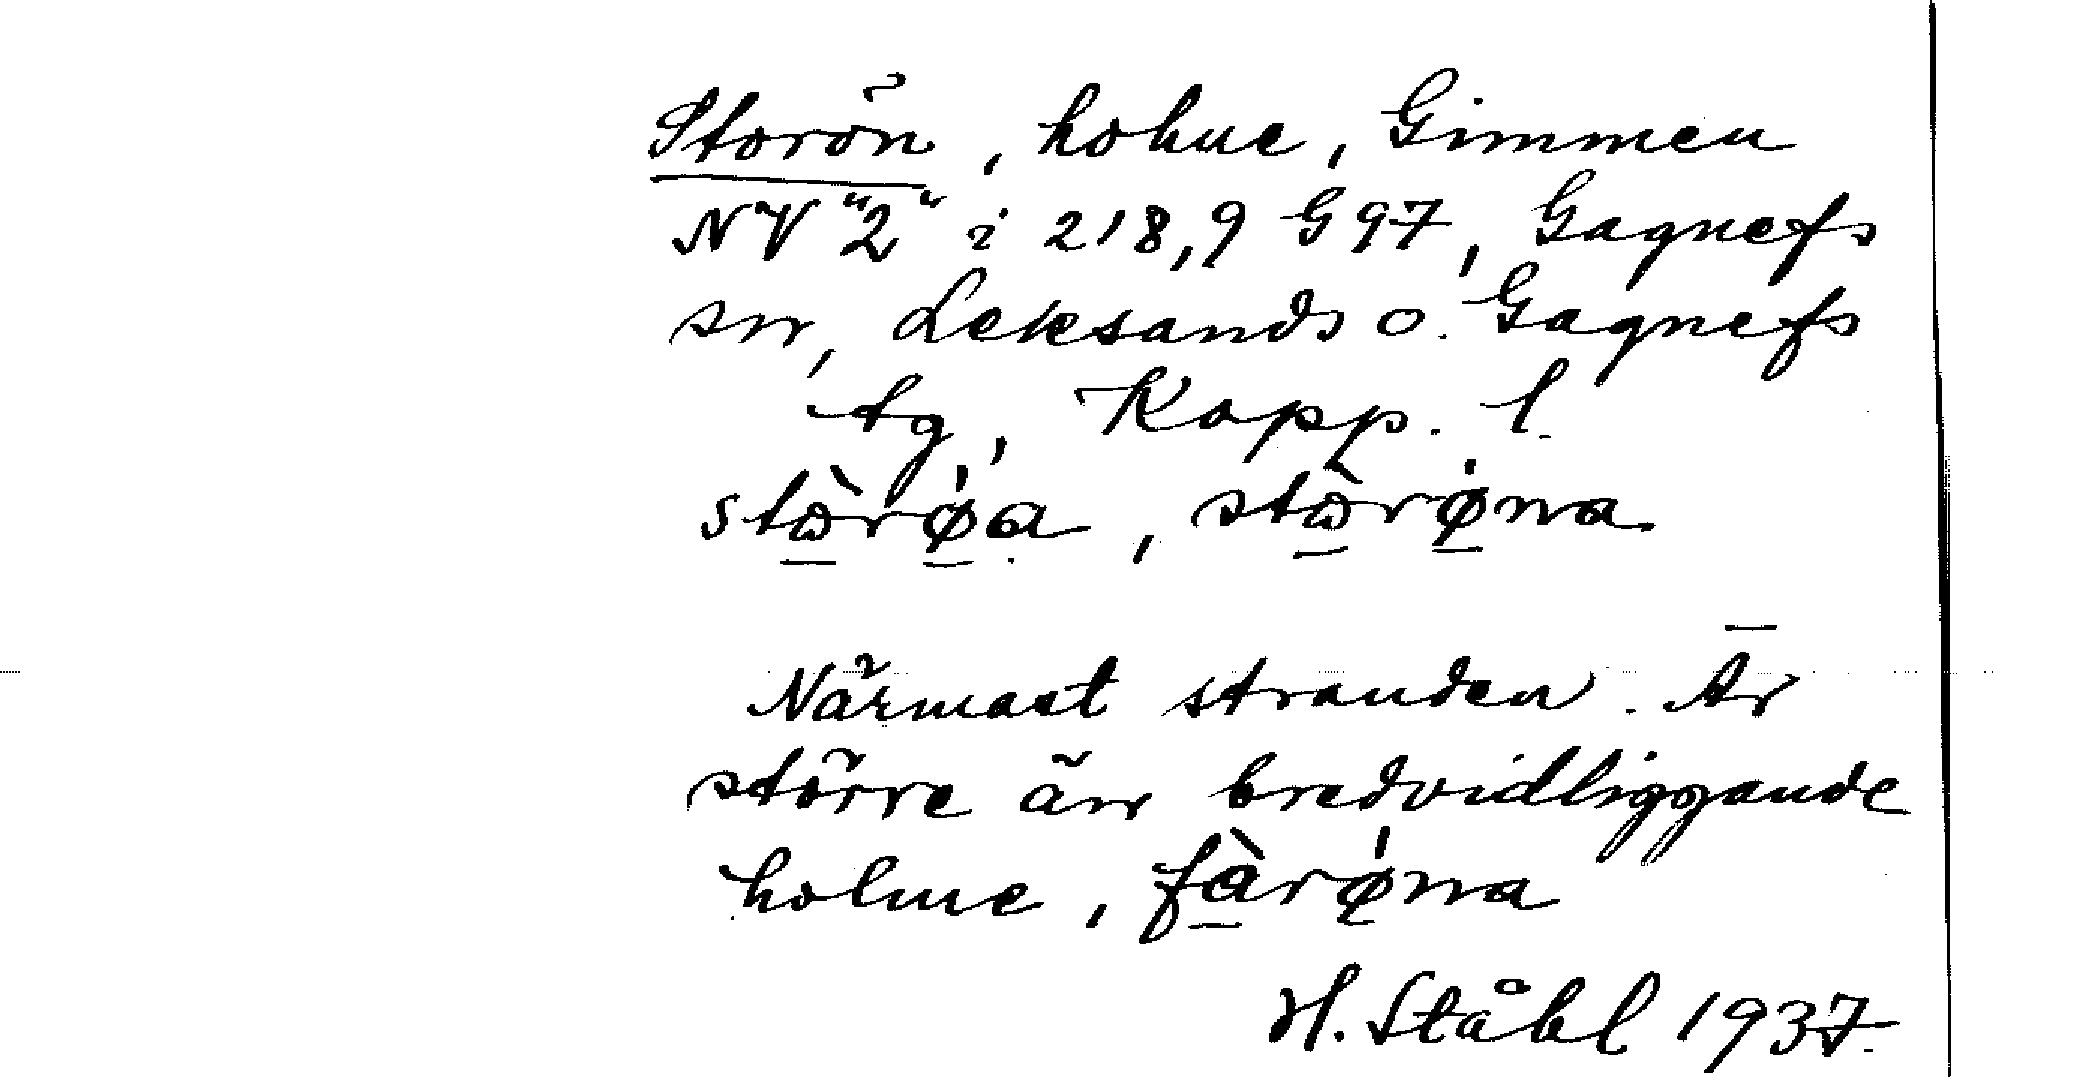 Storön, holme, Gimmen
NV "2" i 218,9 G 97, Gagnefs
sn, Leksands o. Gagnefs
tg, Kopp. l.
stɷ̀rø̍a, stɷ̀rø̍na
Närmast stranden. Är
större än bredvidliggande
holme, fàrø̍na
H. Ståhl 1937.